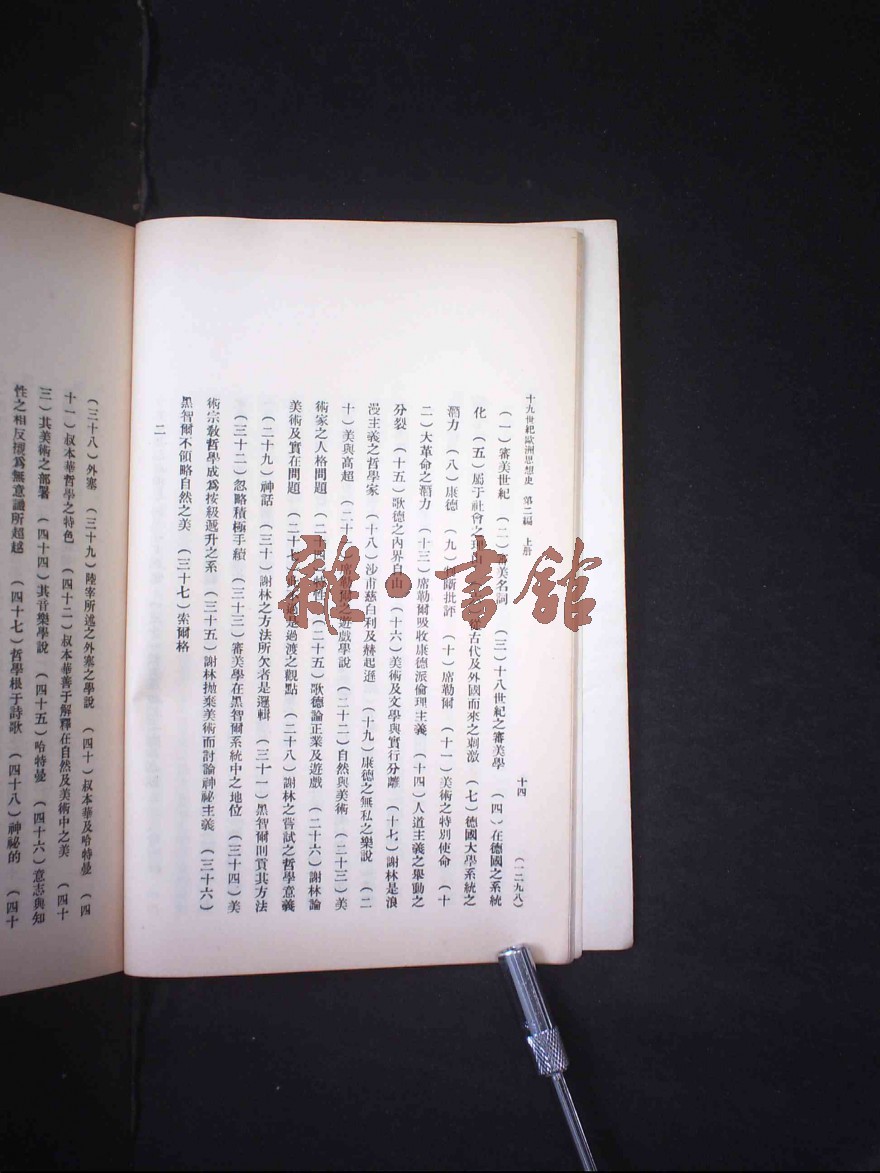 十九世紀歐洲思想史 第二編 上册 十四 (一二九八)
(一)審美世紀 (二)審美名詞 (三)十八世紀之審美學 (四)在德國之系統
化 (五)屬于社會之 從古代及外國而來之刺激 (七)德國大學系統之
潛力 (八)康德 (九)判斷批評 (十)席勒爾 (十一)美術之特別使命 (十
二)大革命之潛力 (十三)席勒爾吸收康德派倫理主義 (十四)人道主義之舉動之
分裂 (十五)歌德之內界自由 (十六)美術及文學與實行分離 (十七)謝林是浪
漫主義之哲學家 (十八)沙甫慈白利及赫起遜 (十九)康德之無私之樂說 (二
十)美與高超 (二十一)席勒爾之遊戲學說 (二十二)自然與美術 (二十三)美
術家之人格問題 (二十四)特性 (二十五)歌德論正業及遊戲 (二十六)謝林論
美術及實在問題 (二十七) 是過渡之觀點 (二十八)謝林之嘗試之哲學意義
(二十九)神話 (三十)謝林之方法所欠者是邏輯 (三十一)黑智爾則貢其方法
(三十二)忽略積極手續 (三十三)審美學在黑智爾系統中之地位 (三十四)美
術宗教哲學成爲按級遞升之系 (三十五)謝林拋棄美術而討論神祕主義 (三十六)
黑智爾不領略自然之美 (三十七)索爾格
二
(三十八)外塞 (三十九)陸宰所述之外塞之學說 (四十)叔本華及哈特曼 (四
十一)叔本華哲學之特色 (四十二)叔本華善于解釋在自然及美術中之美 (四十
三)其美術之部署 (四十四)其音樂學說 (四十五)哈特曼 (四十六)意志與知
性之相反懷爲無意識所超越 (四十七)哲學根于詩歌 (四十八)神祕的 (四十